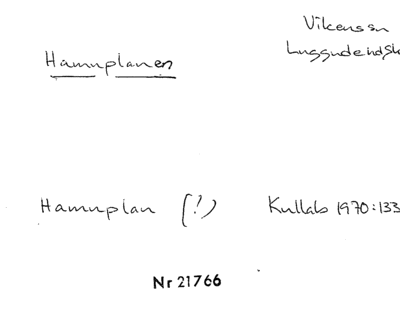 Vikens sn
Hamnplanen
Luggude hd Sk
Hamnplan (?) Kullab 1970:133
Nr 21766